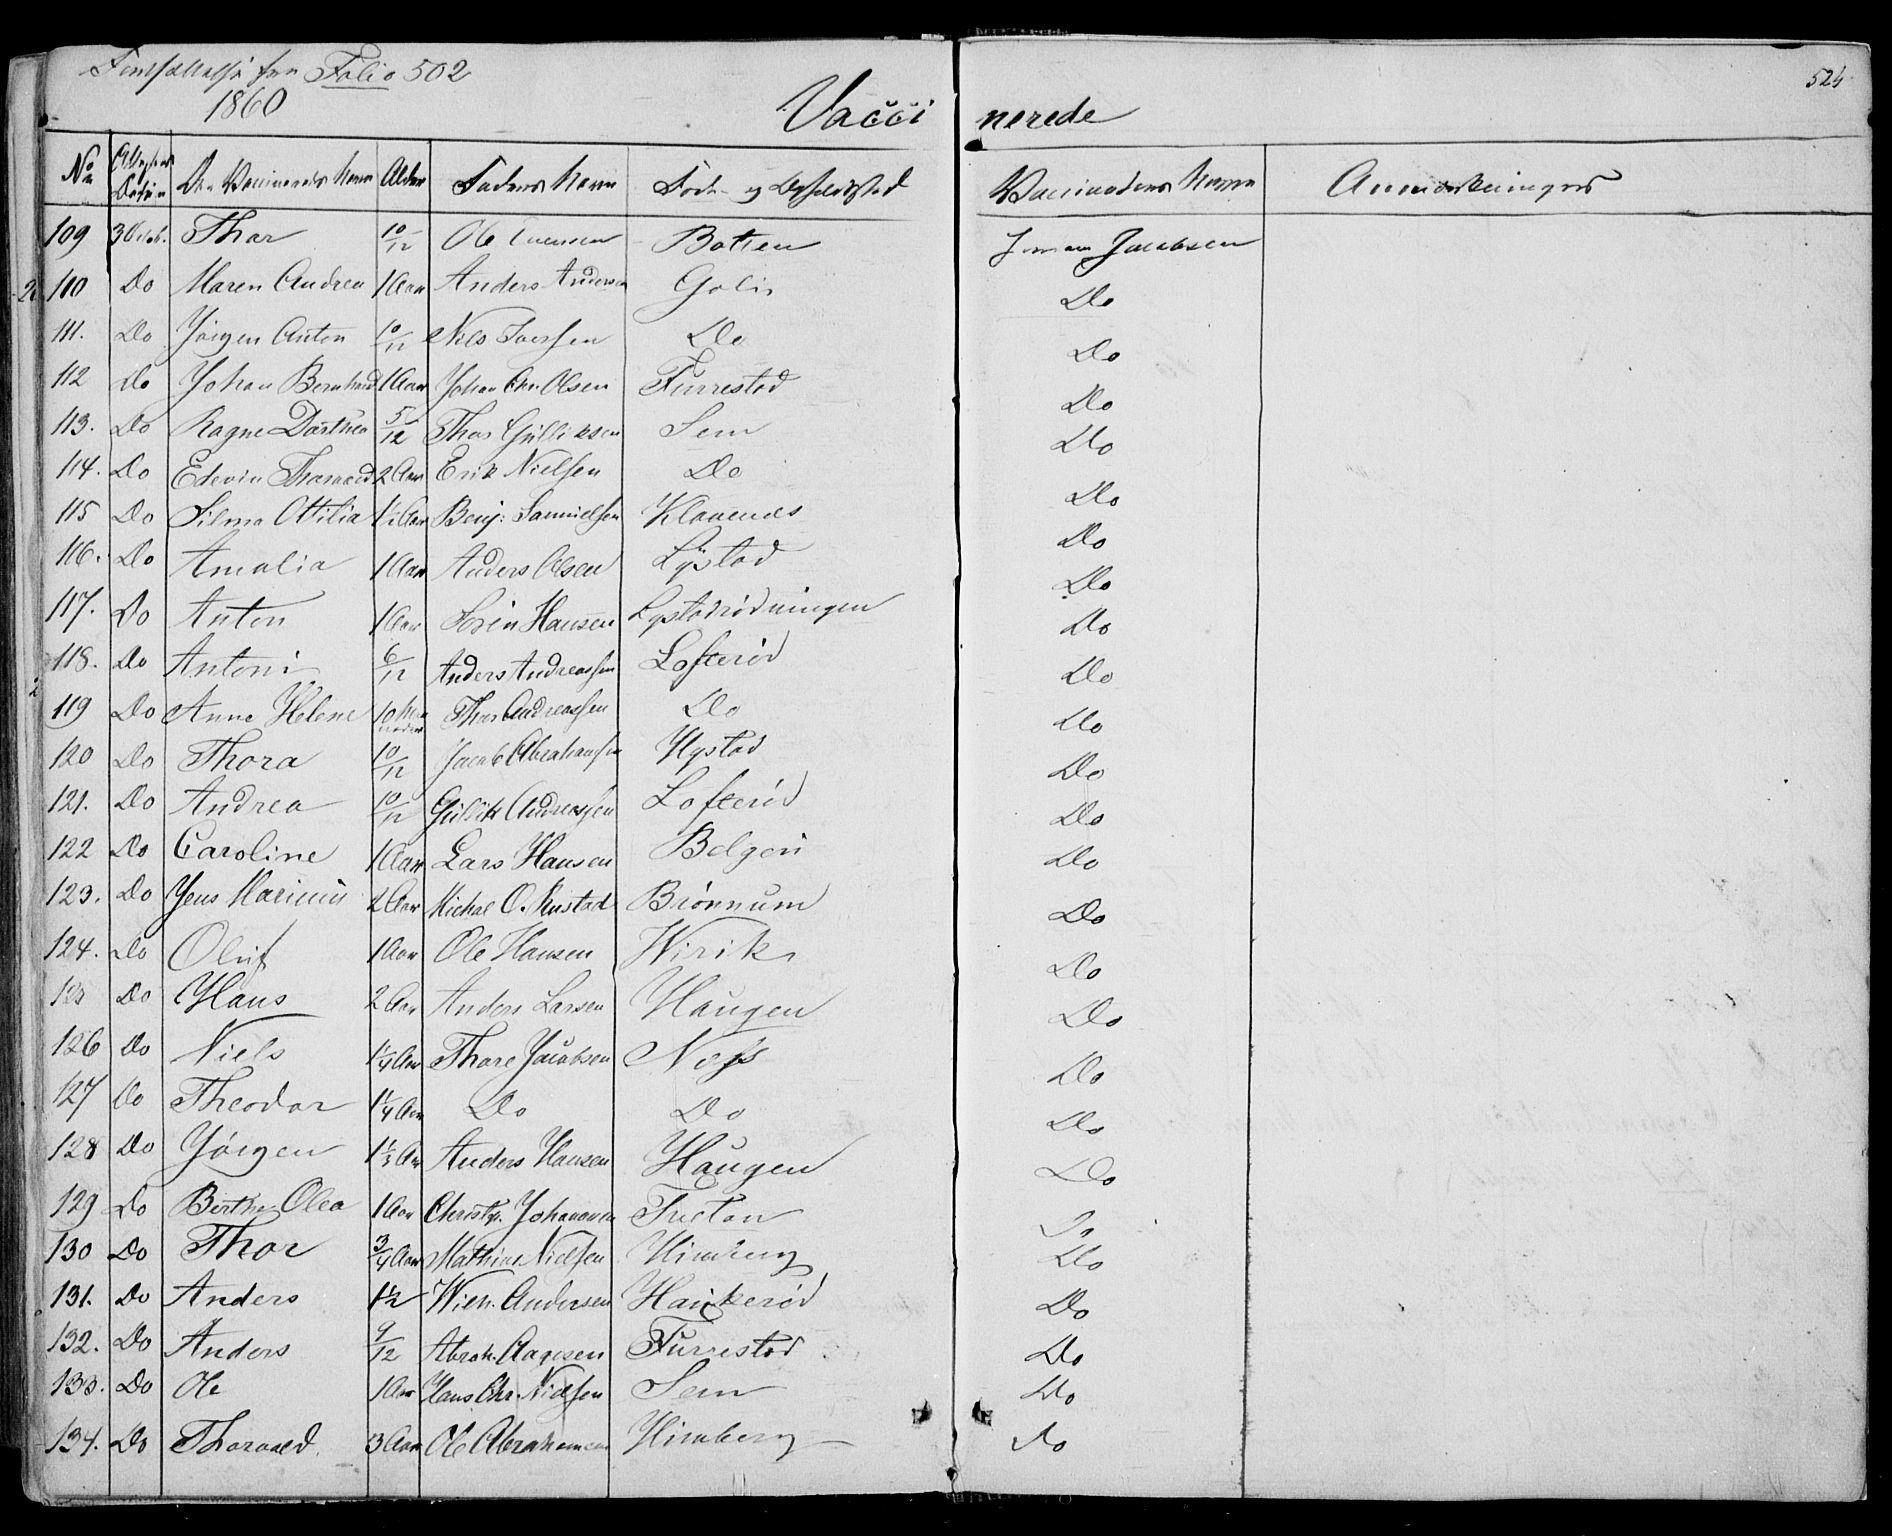 Fortsættelse fra Folio 502
524
1860
Vacci nerede
No Attestens Datum Den Vaccineredes Navn Alder Faderens Navn Føde- og Opholdssted Vaccinators Navn Anmærkninger
109 3 Octb. Thor 10/12 Ole Botten Jacobsen
110 Do Maren Andrea 1 Aar Anders Andersen Golis Do
111. Do Jørgen Anton 10/12 Nils Iversen Do Do
112 Do Johan Bernhard 1 Aar Johan Chr. Olsen Furrestad Do
113. Do Ragne Dorthea 5/12 Thor Gulliksen Sem Do
114. Do Edevin Thorvald 2 Aar Erik Nielsen Do Do
115 Do Silma Otilia 1½ Aar Benj: Samuelsen Klavenes Do
116. Do Amalia 1 Aar Anders Olsen Lystad Do
117. Do Anton 1 Aar Sørin Hansen Lystadrødningen Do
118. Do Antoni 6/12 Anders Andreassen Lofterød Do
119 Do Anne Helene 10 Maaneder Thor Andreassen Do Do
120 Do Thora 10/12 Jacob Abrahamsen Hystad Do
121. Do Andrea 10/12 Gullik Andreassen Lofterød Do
122 Do Caroline 1 Aar Lars Hansen Bolgen Do
123. Do Jens Marinius 2 Aar Michal O. Rustad Brønnum Do
124. Do Oluf 1 Aar Ole Hansen Wirik Do
125 Do Hans 2 Aar Anders Larsen Haugen Do
126 Do Niels 1¼ Aar Thore Jacobsen Næss Do
127 Do Theodor 1¼ Aar Do Do Do
128 Do Jørgen 1⅓ Aar Anders Hansen Haugen Do
129 Do Berthe Olea 1 Aar Christp. Johannesen Do
130 Do Thor 3/4 Aar Mathias Nielsen Himberg Do
131. Do Anders 1½ Wilh. Andersen Haukerød Do
132. Do Anders 9/12 Abrah. Aagesen Furrestad Do
133. Do Ole 1 Aar Hans Chr. Nielsen Sem Do
134. Do Thorvald. 3 Aar Ole Abrahamsen Himberg Do